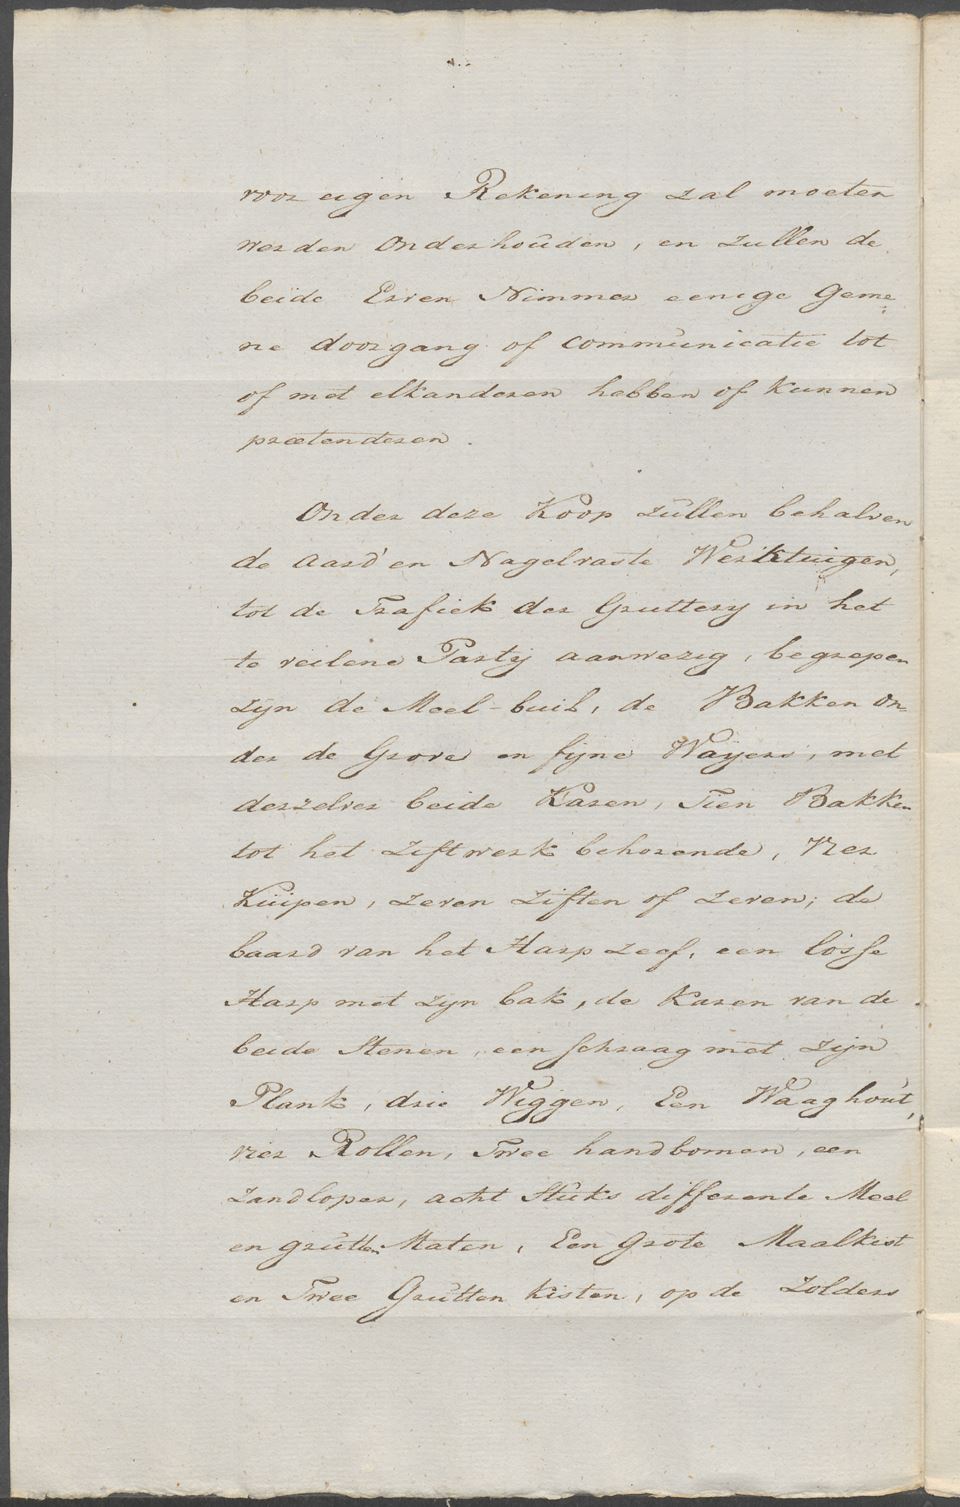 voor eigen Rekening zal moeten
werden onderhouden, en zullen de
beide Erven Nimmer eenige Geme
ne doorgang of communicatie tot
of met elkanderen hebben of kunnen
prætenderen.
Onder deze Koop zullen behalven
de aard en Nagelvaste Werktuigen,
tot de Trafiek der Grutterij in het
te veilene Partij aanwezig, begrepen
zijn de Meel-buil, de Bakken on-
der de Grove en fijne Waijers, met
derzelver beide Karen, Tien Bakken
tot het Ziftwerk behorende, Vier
Kuipen, zeven Ziften of zeven; de
baard van het Harp zeef, een losse
Harp met zijn bak, de Karen van de
beide Stenen, een schraag met zijn
Plank, drie Wiggen, Een Waaghout,
vier Rollen, Twee handbomen, een
Zandloper, acht Stuks differente Meel
en grutten Maten, Een Grote Maalkist
en Twee Grutten kisten, op de Zolders